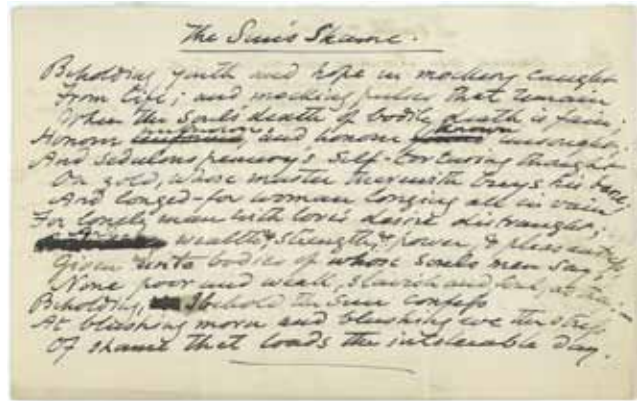 The Sun's Shame.
Beholding youth and hope in mockery caught
From life; and mocking pulses that remain
When the soul's death of bodily death is fain;
Honour unknown, and honour known unsought;
And sedulous penury's self-torturing thought
On gold, whose master therewith buys his bane;
And longed-for woman longing all in vain
For lonely man with love's desire distraught;
wealth & strength, & power, & pleasantness
Given unto bodies of whose souls men say,
None poor and weak, slavish and foul, as they:—
Beholding, I behold the Sun confess
At blushing morn and blushing eve the stress
Of shame that loads the intolerable day.